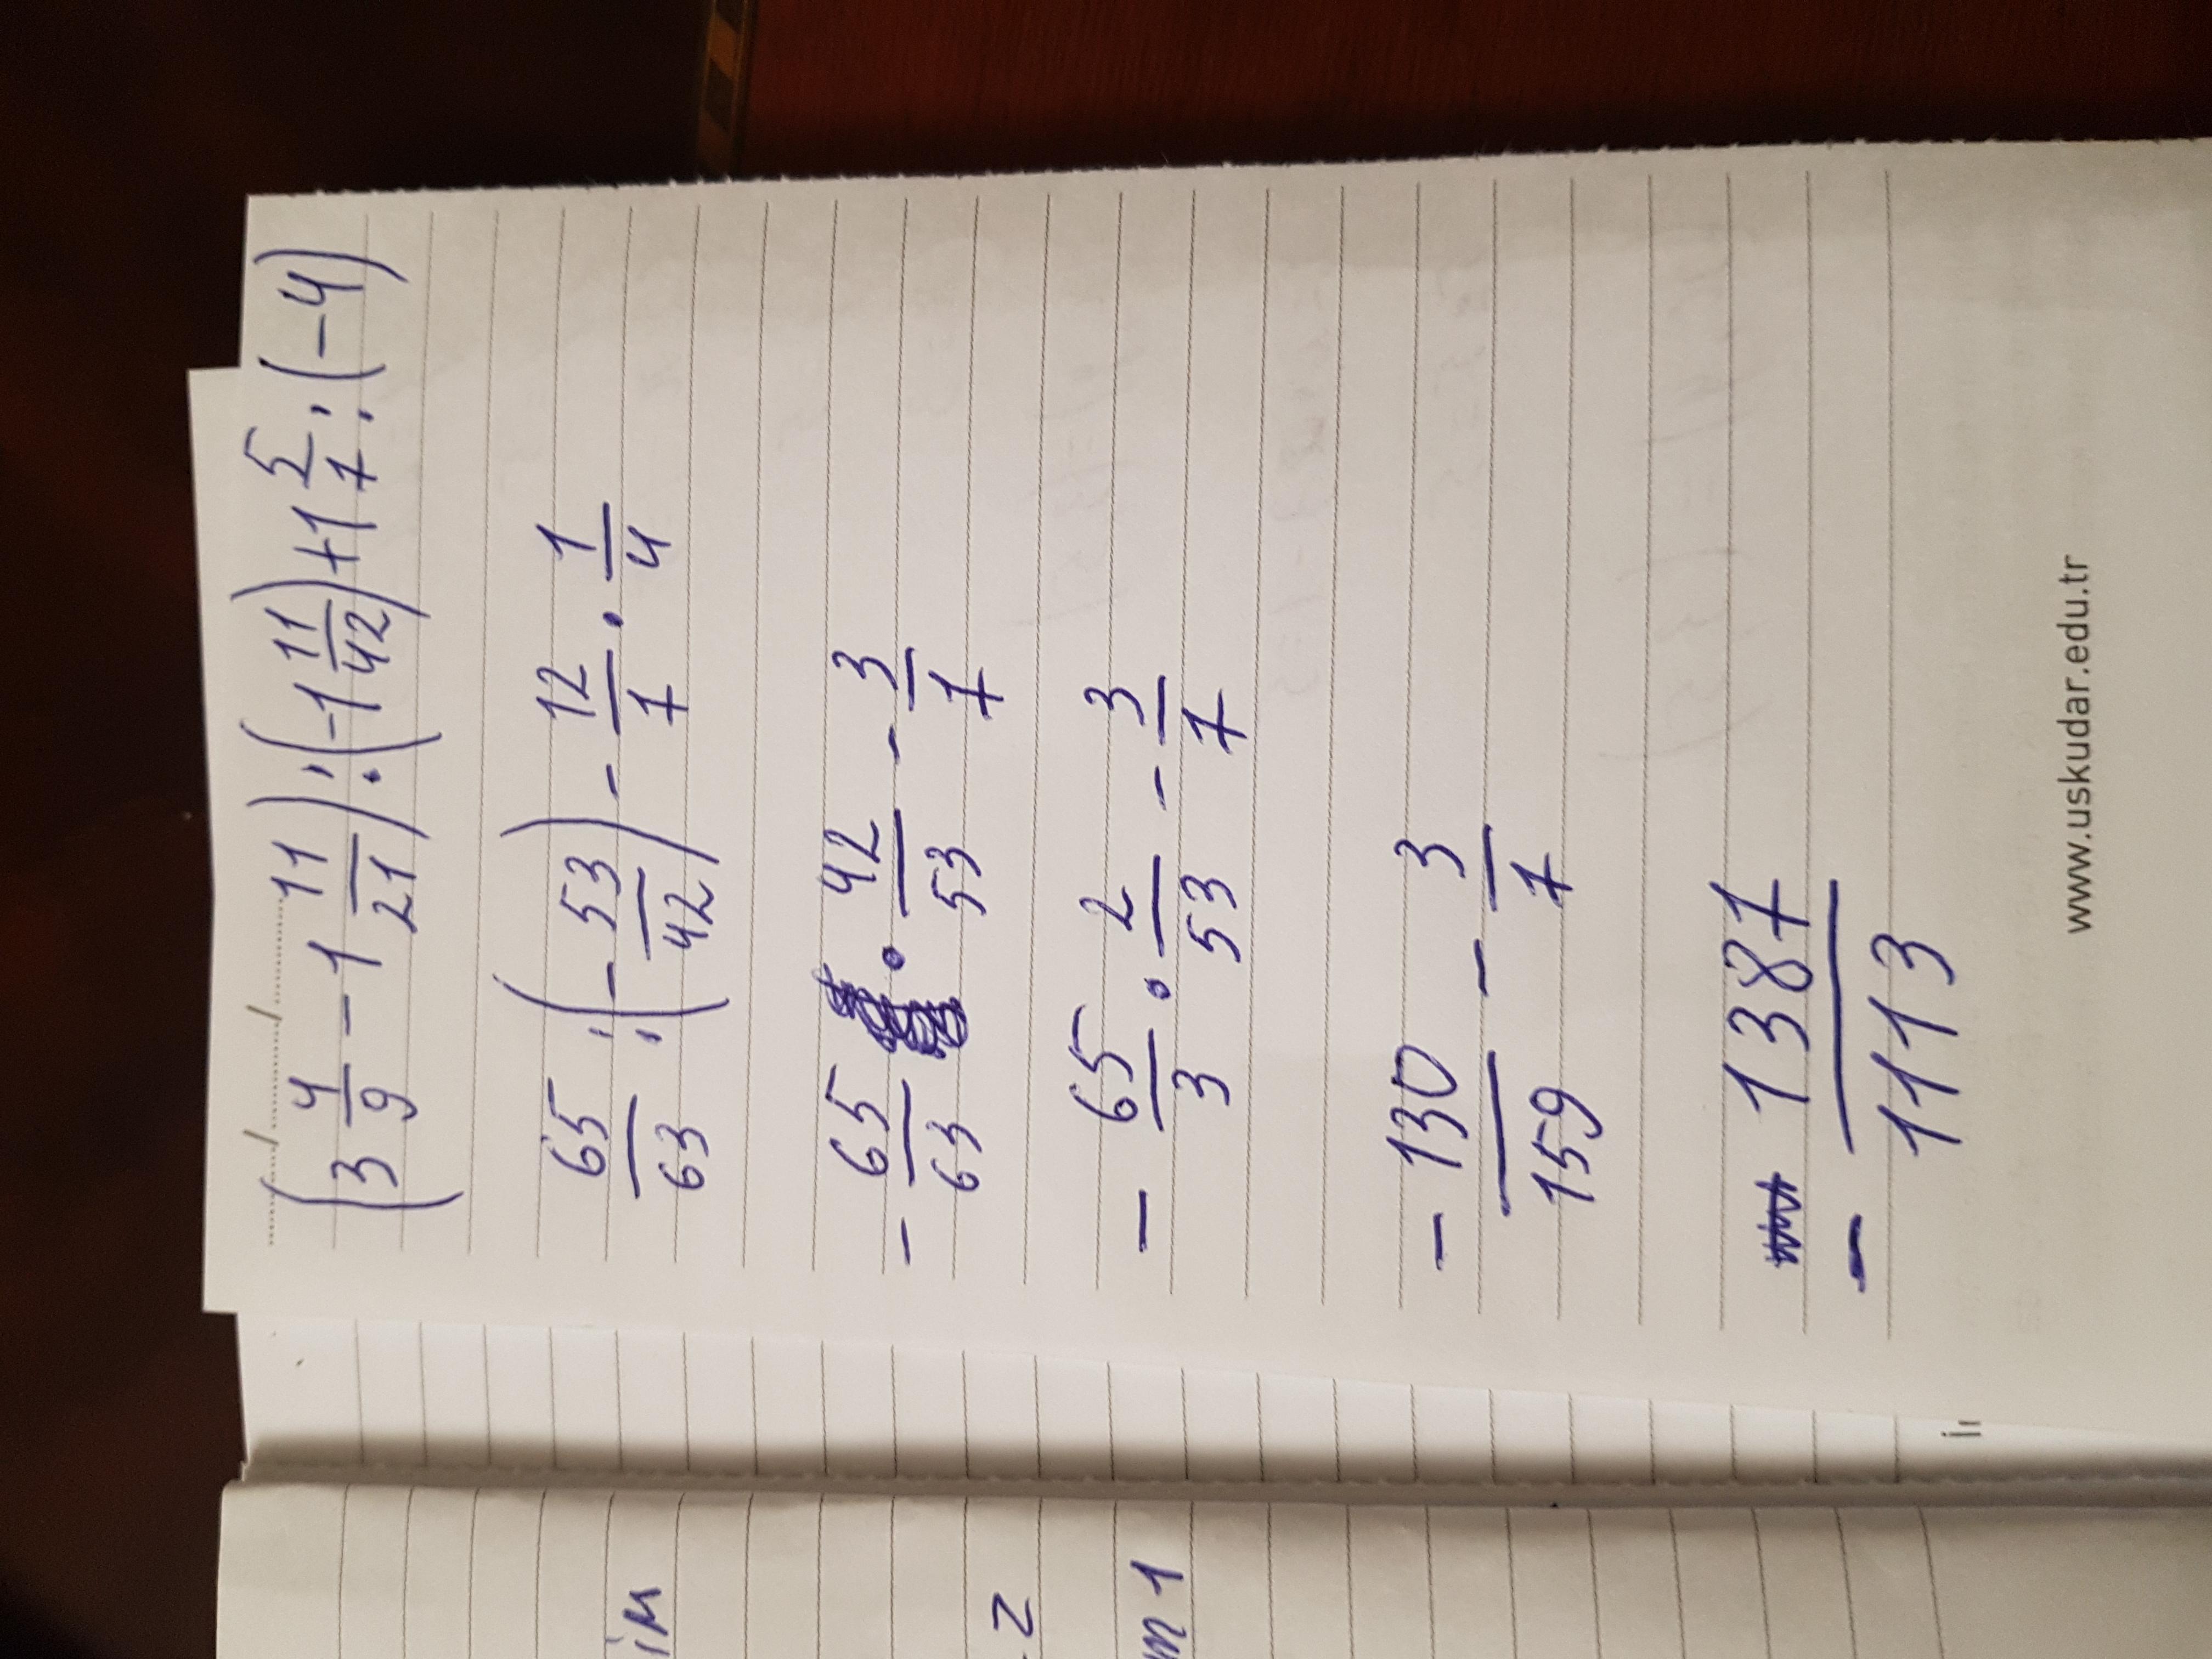 (3 4/9 - 1 11/21) : (-1 11/42) + 1 5/7 : (-4)
65/63 : (- 53/42) - 12/7 · 1/4
- 65/63 · 42/53 - 3/7
- 65/3 · 2/53 - 3/7
- 130/159 - 3/7
- 1387/1113
www.uskudar.edu.tr
im
2
m 1